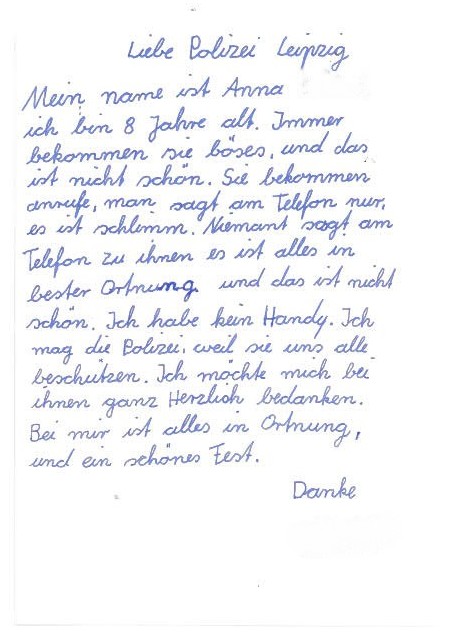 Liebe Polizei Leipzig
Mein name ist Anna
ich bin 8 Jahre alt. Immer
bekommen sie böses, und das
ist nicht schön. Sie bekommen
anrufe, man sagt am Telefon nur,
es ist schlimm. Niemant sagt am
Telefon zu ihnen es ist alles in
bester Ortnung und das ist nicht
schön. Ich habe kein Handy. Ich
mag die Polizei, weil sie uns alle
beschützen. Ich möchte mich bei
ihnen ganz Herzlich bedanken.
Bei mir ist alles in Ortnung,
und ein schönes Fest.
Danke